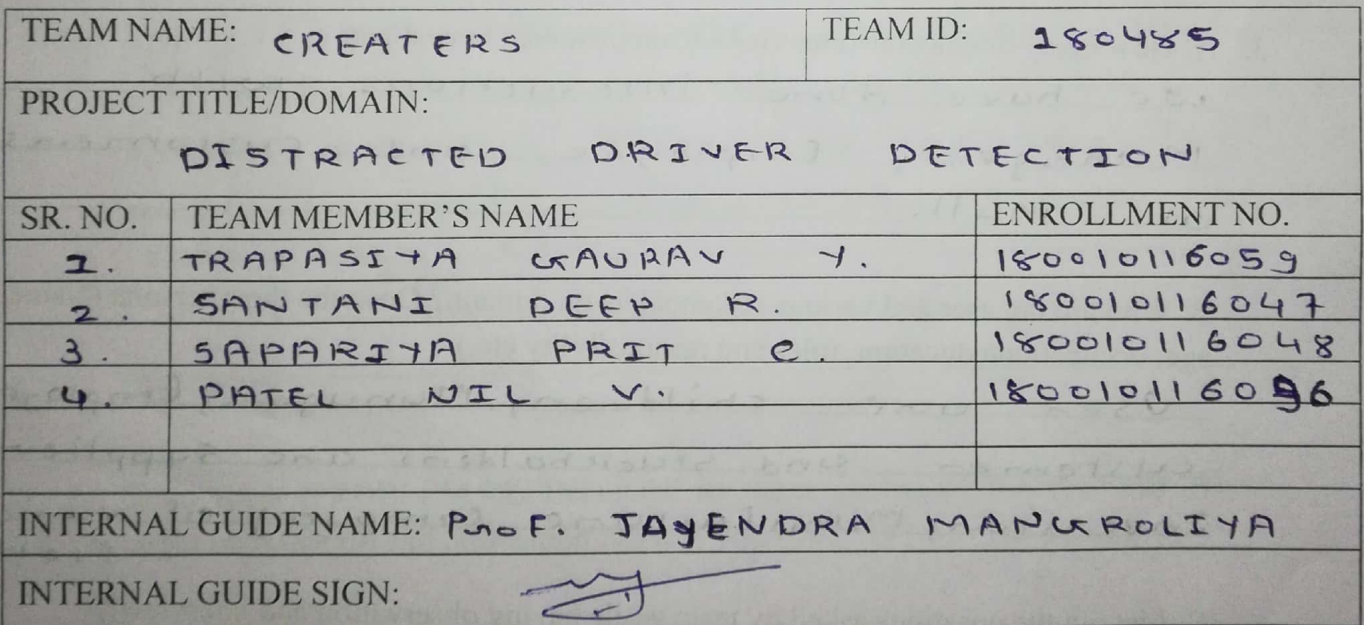 TEAM NAME: CREATERS TEAM ID: 180485
PROJECT TITLE/DOMAIN:
DISTRACTED DRIVER DETECTION
SR. NO. TEAM MEMBER'S NAME ENROLLMENT NO.
1. TRAPASIYA GAURAV Y. 180010116059
2. SANTANI DEEP R. 180010116047
3. SAPARIYA PRIT C. 180010116048
4. PATEL NIL V.
INTERNAL GUIDE NAME: Prof. JAYENDRA MANGROLIYA
INTERNAL GUIDE SIGN: